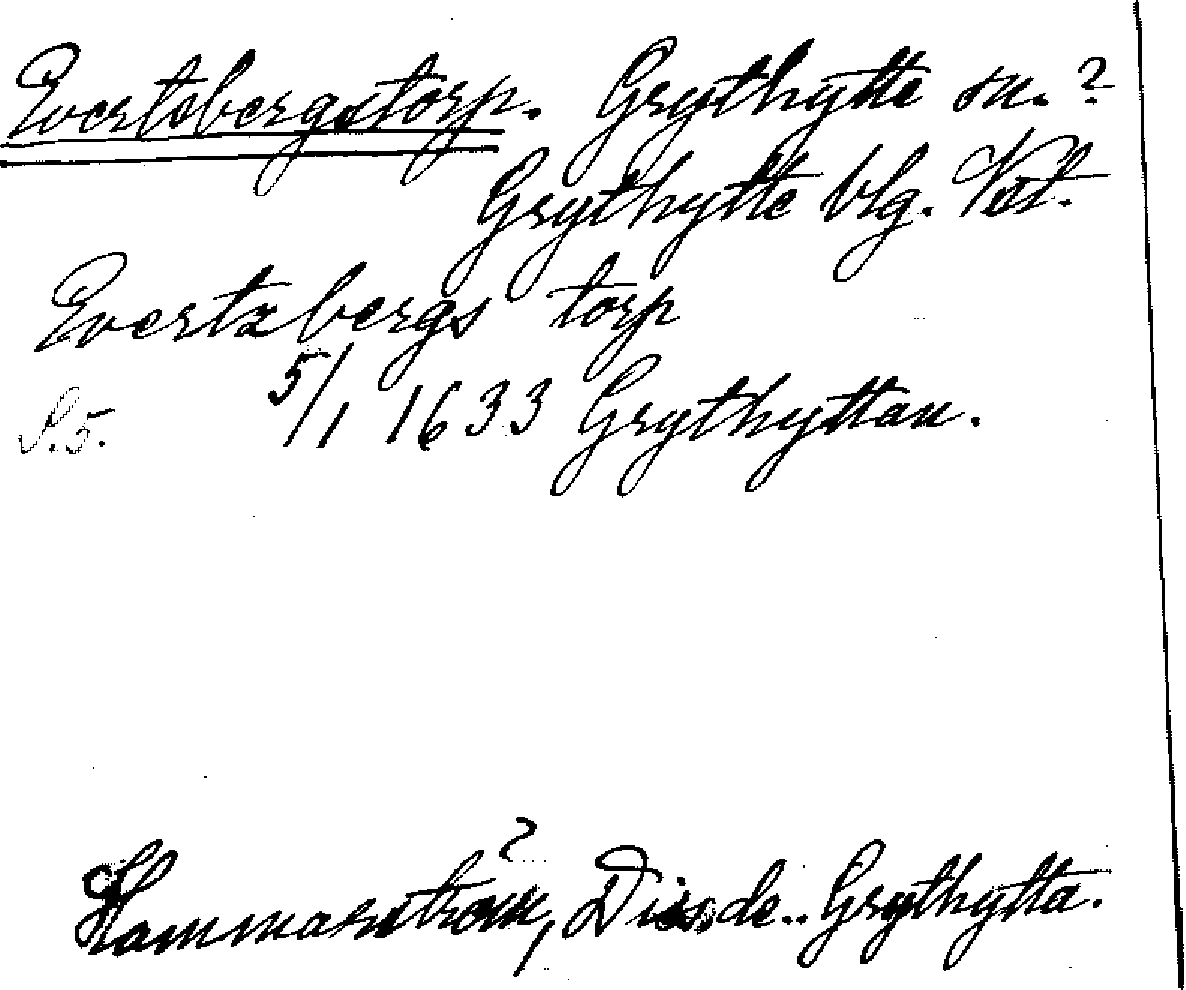 Evertsbergstorp. Grythytte sn. ?
Grythytte blg. Vstl.
Evertzbergs torp
S. 5. 5/1 1633 Grythyttan.
Hammarström, Diss. de.. Grythytta.